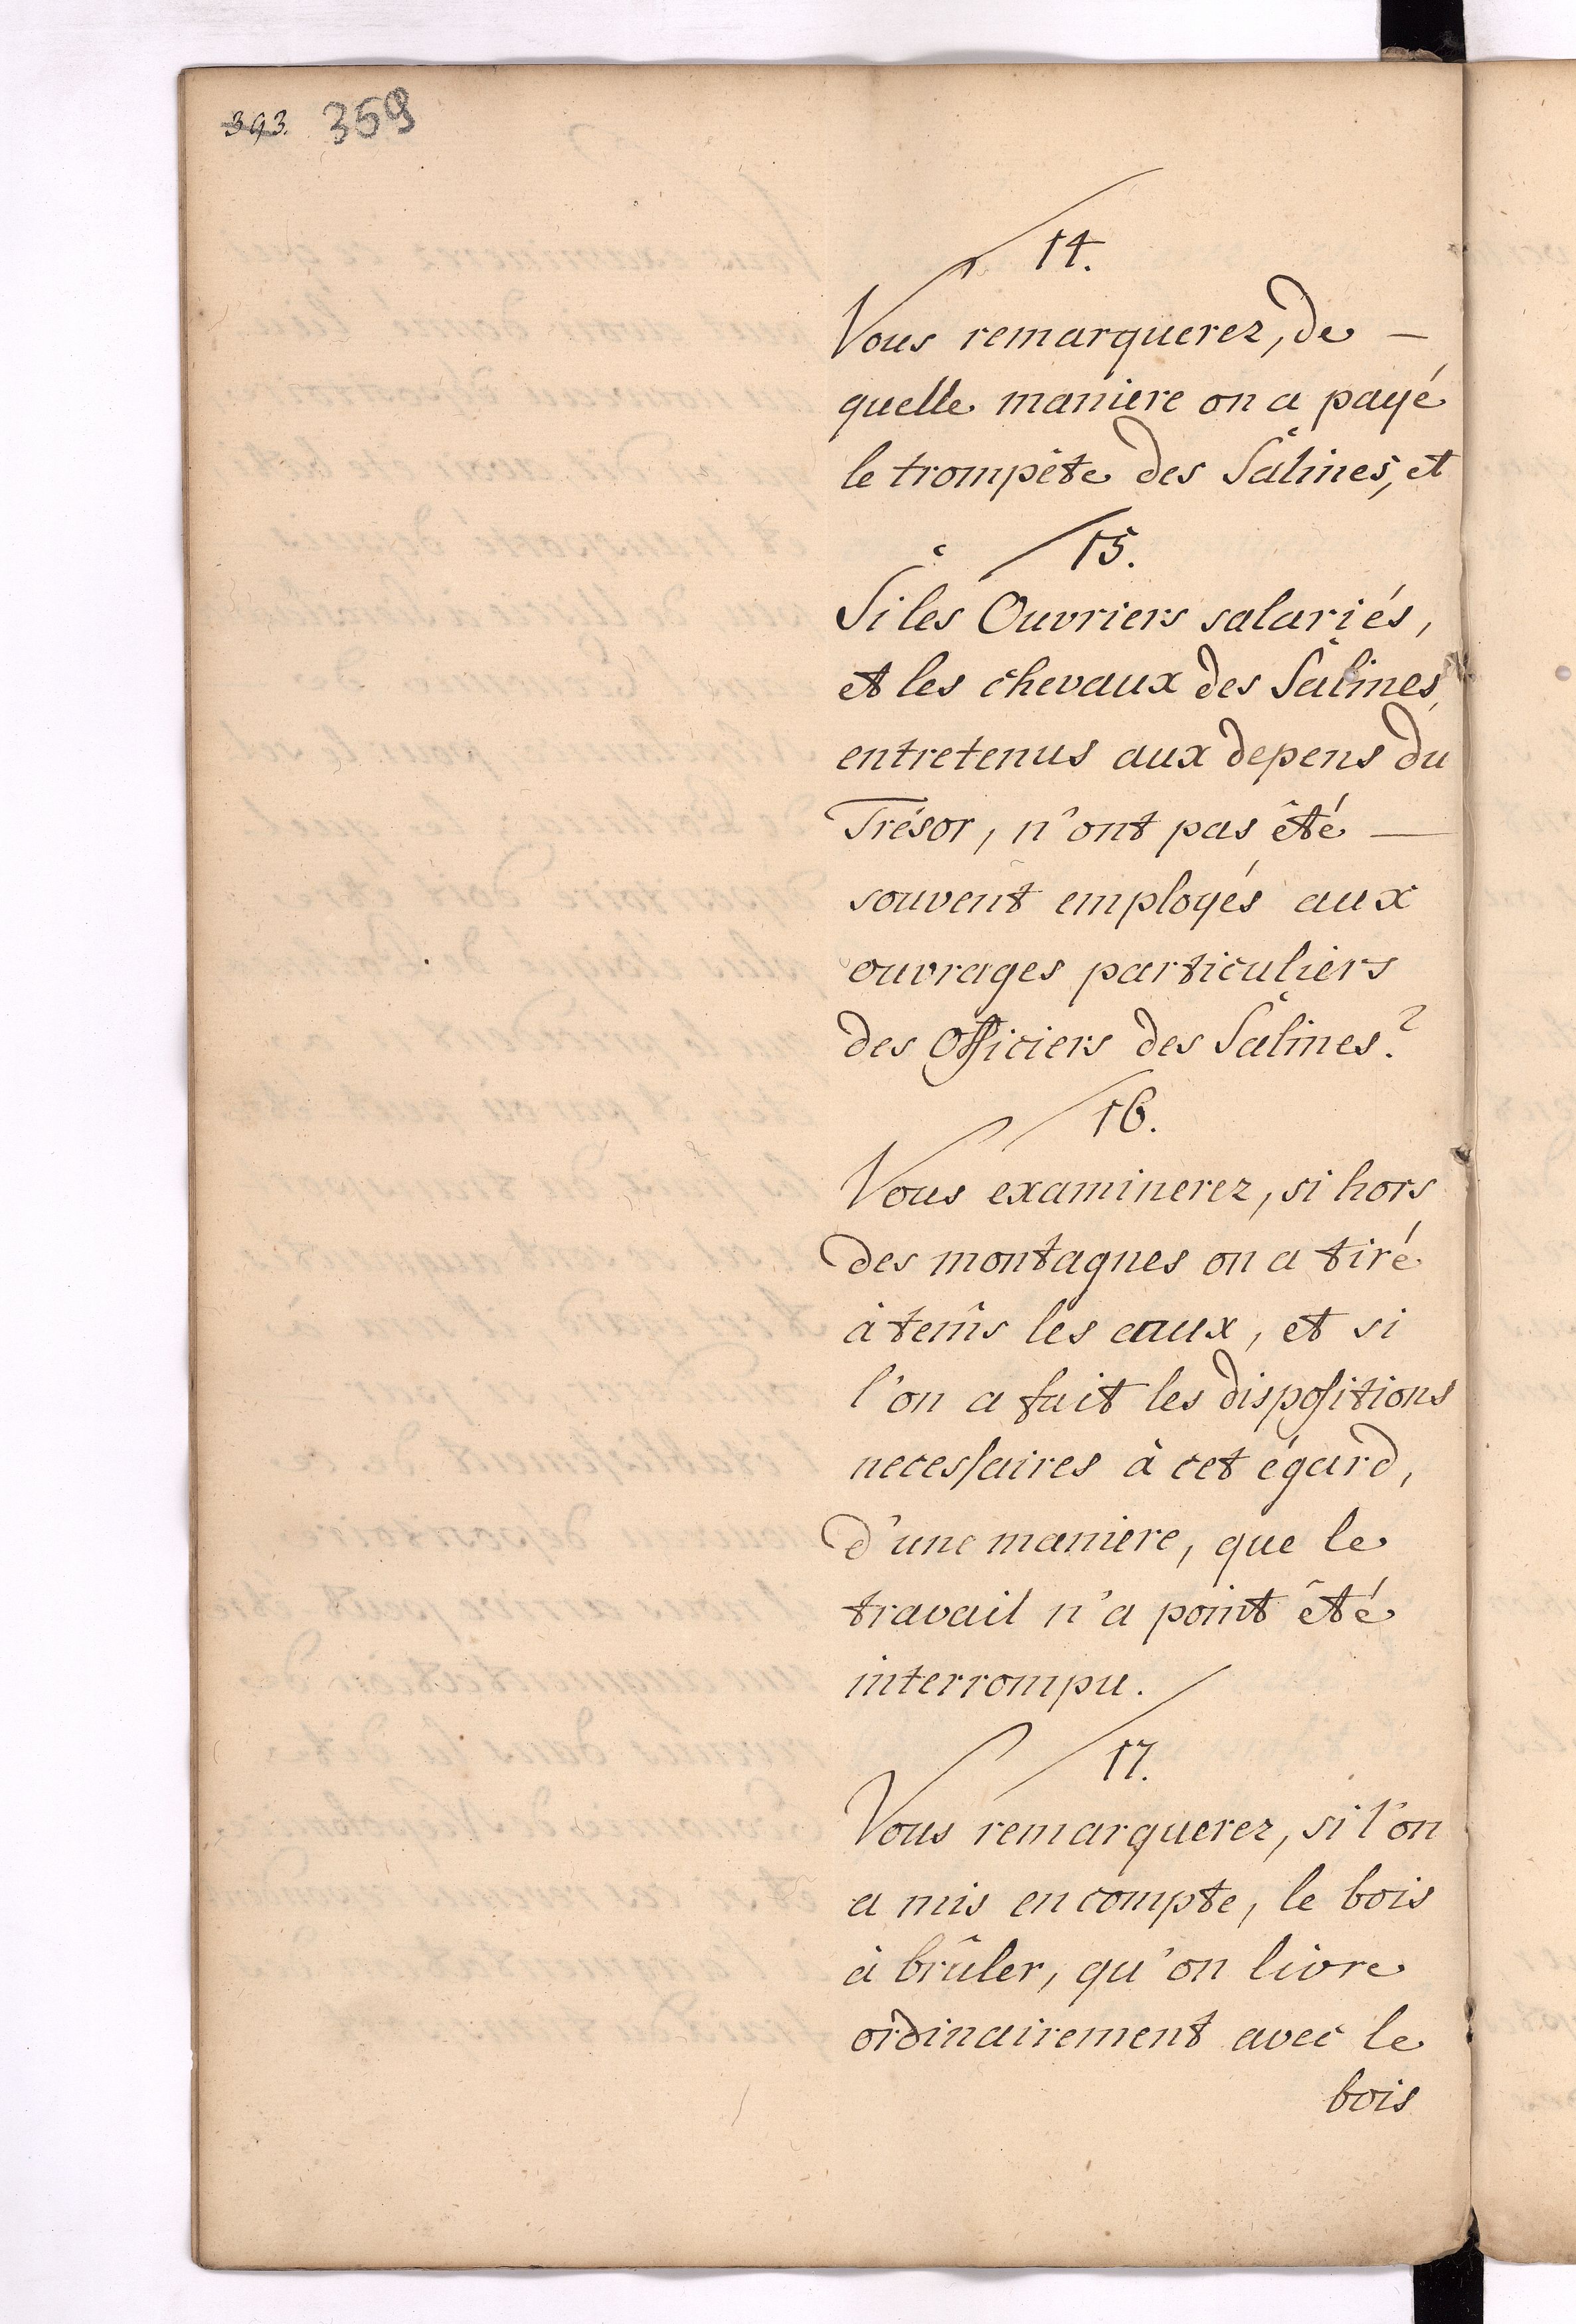 393. 359
14.
Vous remarquerez, de —
quelle maniere on a payé
le trompête des Salines, et
15.
Si les Ouvriers salariés,
et les chevaux des Salines,
entretenus aux depens du
Trésor, n'ont pas êté —
souvent employés aux
ouvrages particuliers
des Officiers des Salines?
16.
Vous examinerez, si hors
des montagnes on a tiré
à tems les eaux, et si
l'on a fait les dispositions
necessaires à cet égard,
d'une maniere, que le
travail n'a point êté
interrompu.
17.
Vous remarquerez, si l'on
a mis en compte, le bois
à brûler, qu'on livre
ordinairement avec le
bois